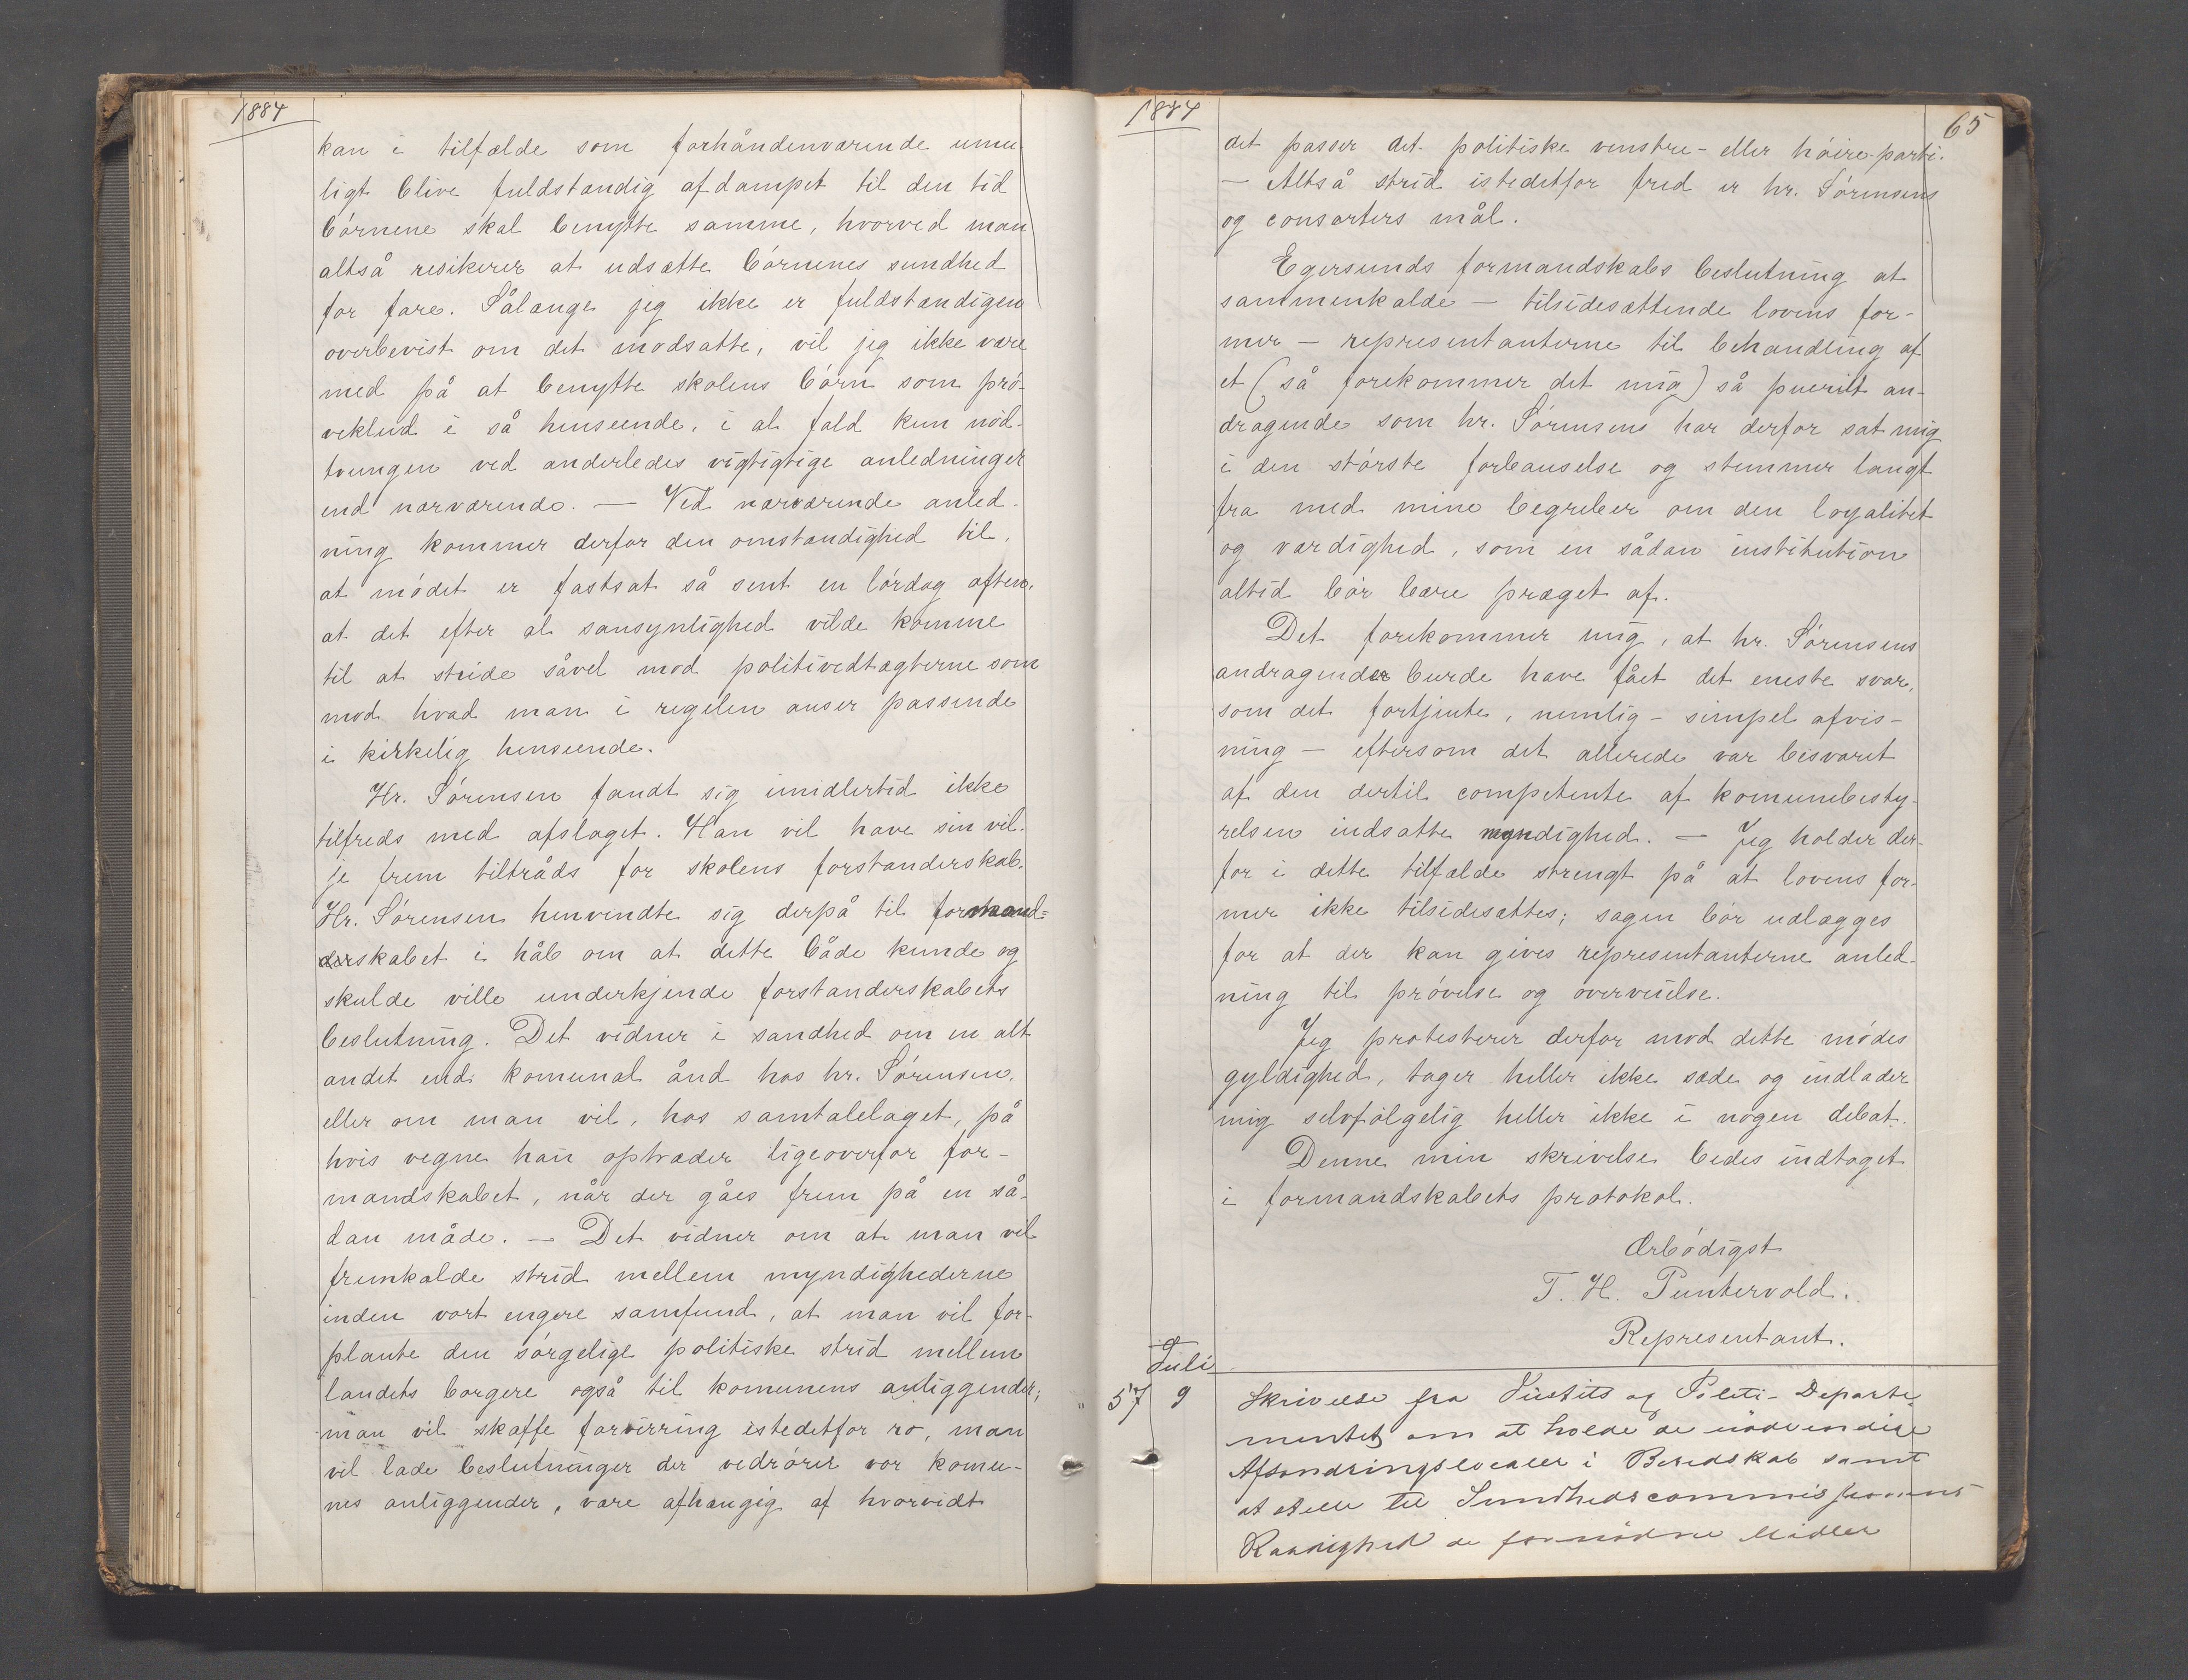 1884
kan i tilfælde som forhåndenværende umu-
ligt blive fuldstændig afdampet til den tid
børnene skal benytte samme, hvorved man
altså resikerer at udsætte børnenes sundhed
for fare. Sålænge jeg ikke er fuldstændigen
overbevist om det modsatte, vil jeg ikke være
med på at benytte skolens børn som prø-
veklud i så henseende, i al fald kun nød-
tvungen ved anderledes vigtigtige anledninger
end nærværende. — Ved nærværende anled-
ning kommer derfor den omstændighed til,
at mødet er fastsat så sent en lørdag aften,
at det efter al sansynlighed vilde komme
til at stride såvel mod politivedtægterne som
mod hvad man i regelen anser passende
i kirkelig henseende.
Hr. Sørensen fandt sig imidlertid ikke
tilfreds med afslaget. Han vil have sin vil-
je frem tiltråds for skolens forstanderskab.
Hr. Sørensen henvendte sig derpå til formand=
skabet i håb om at dette både kunde og
skulde ville underkjende forstanderskabets
beslutning. Det vidner i sandhed om en alt
andet end komunal ånd hos hr. Sørensen,
eller om man vil, hos samtalelaget, på
hvis vegne han optræder ligeoverfor for-
mandskabet, når der gåes frem på en så-
dan måde. — Det vidner om at man vil
fremkalde strid mellem myndighederne
inden vort engere samfund, at man vil for-
plante den sørgelige politiske strid mellem
landets borgere også til komunens anliggender;
man vil skaffe forvirring istedetfor ro, man
vil lade beslutninger der vedrører vor komu-
nes anliggender, være afhængig af hvorvidt
1884
65
det passer det politiske venstre- eller høire-parti.
— Altså strid istedetfor fred er hr. Sørensens
og consorters mål.
Egersunds formandskabs beslutning at
sammenkalde — tilsidesættende lovens for-
mer — representanterne til behandling af
et (så forekommer det mig) så puerilt an-
dragende som hr. Sørensens har derfor sat mig
i den største forbauselse og stemmer langt
fra med mine begreber om den loyalitet
og værdighed, som en sådan institution
altid bør bære præget af.
Det forekommer mig, at hr. Sørensens
andragender burde have fået det eneste svar,
som det fortjente, nemlig - simpel afvis-
ning — eftersom det allerede var besvaret
af den dertil competente af komunebesty-
relsen indsatte myndighed. — Jeg holder der-
for i dette tilfælde strengt på at lovens for-
mer ikke tilsidesættes; sagen bør udlægges
for at der kan gives representanterne anled-
ning til prøvelse og overveielse.
Jeg protesterer derfor mod dette mødes
gyldighed, tager heller ikke sæde og indlader
mig selvfølgelig heller ikke i nogen debat.
Denne min skrivelse bedes indtaget
i formandskabets protokol.
Ærbødigst
T. H. Puntervold.
Representant.
Juli
57 9 Skrivelse fra Justits og Politi-Departe-
mentet om at holde de nödvendige
Afsondringslocaler i Beredskab samt
at stille til Sundhedscommissionens
Raadighed de fornödne Midler